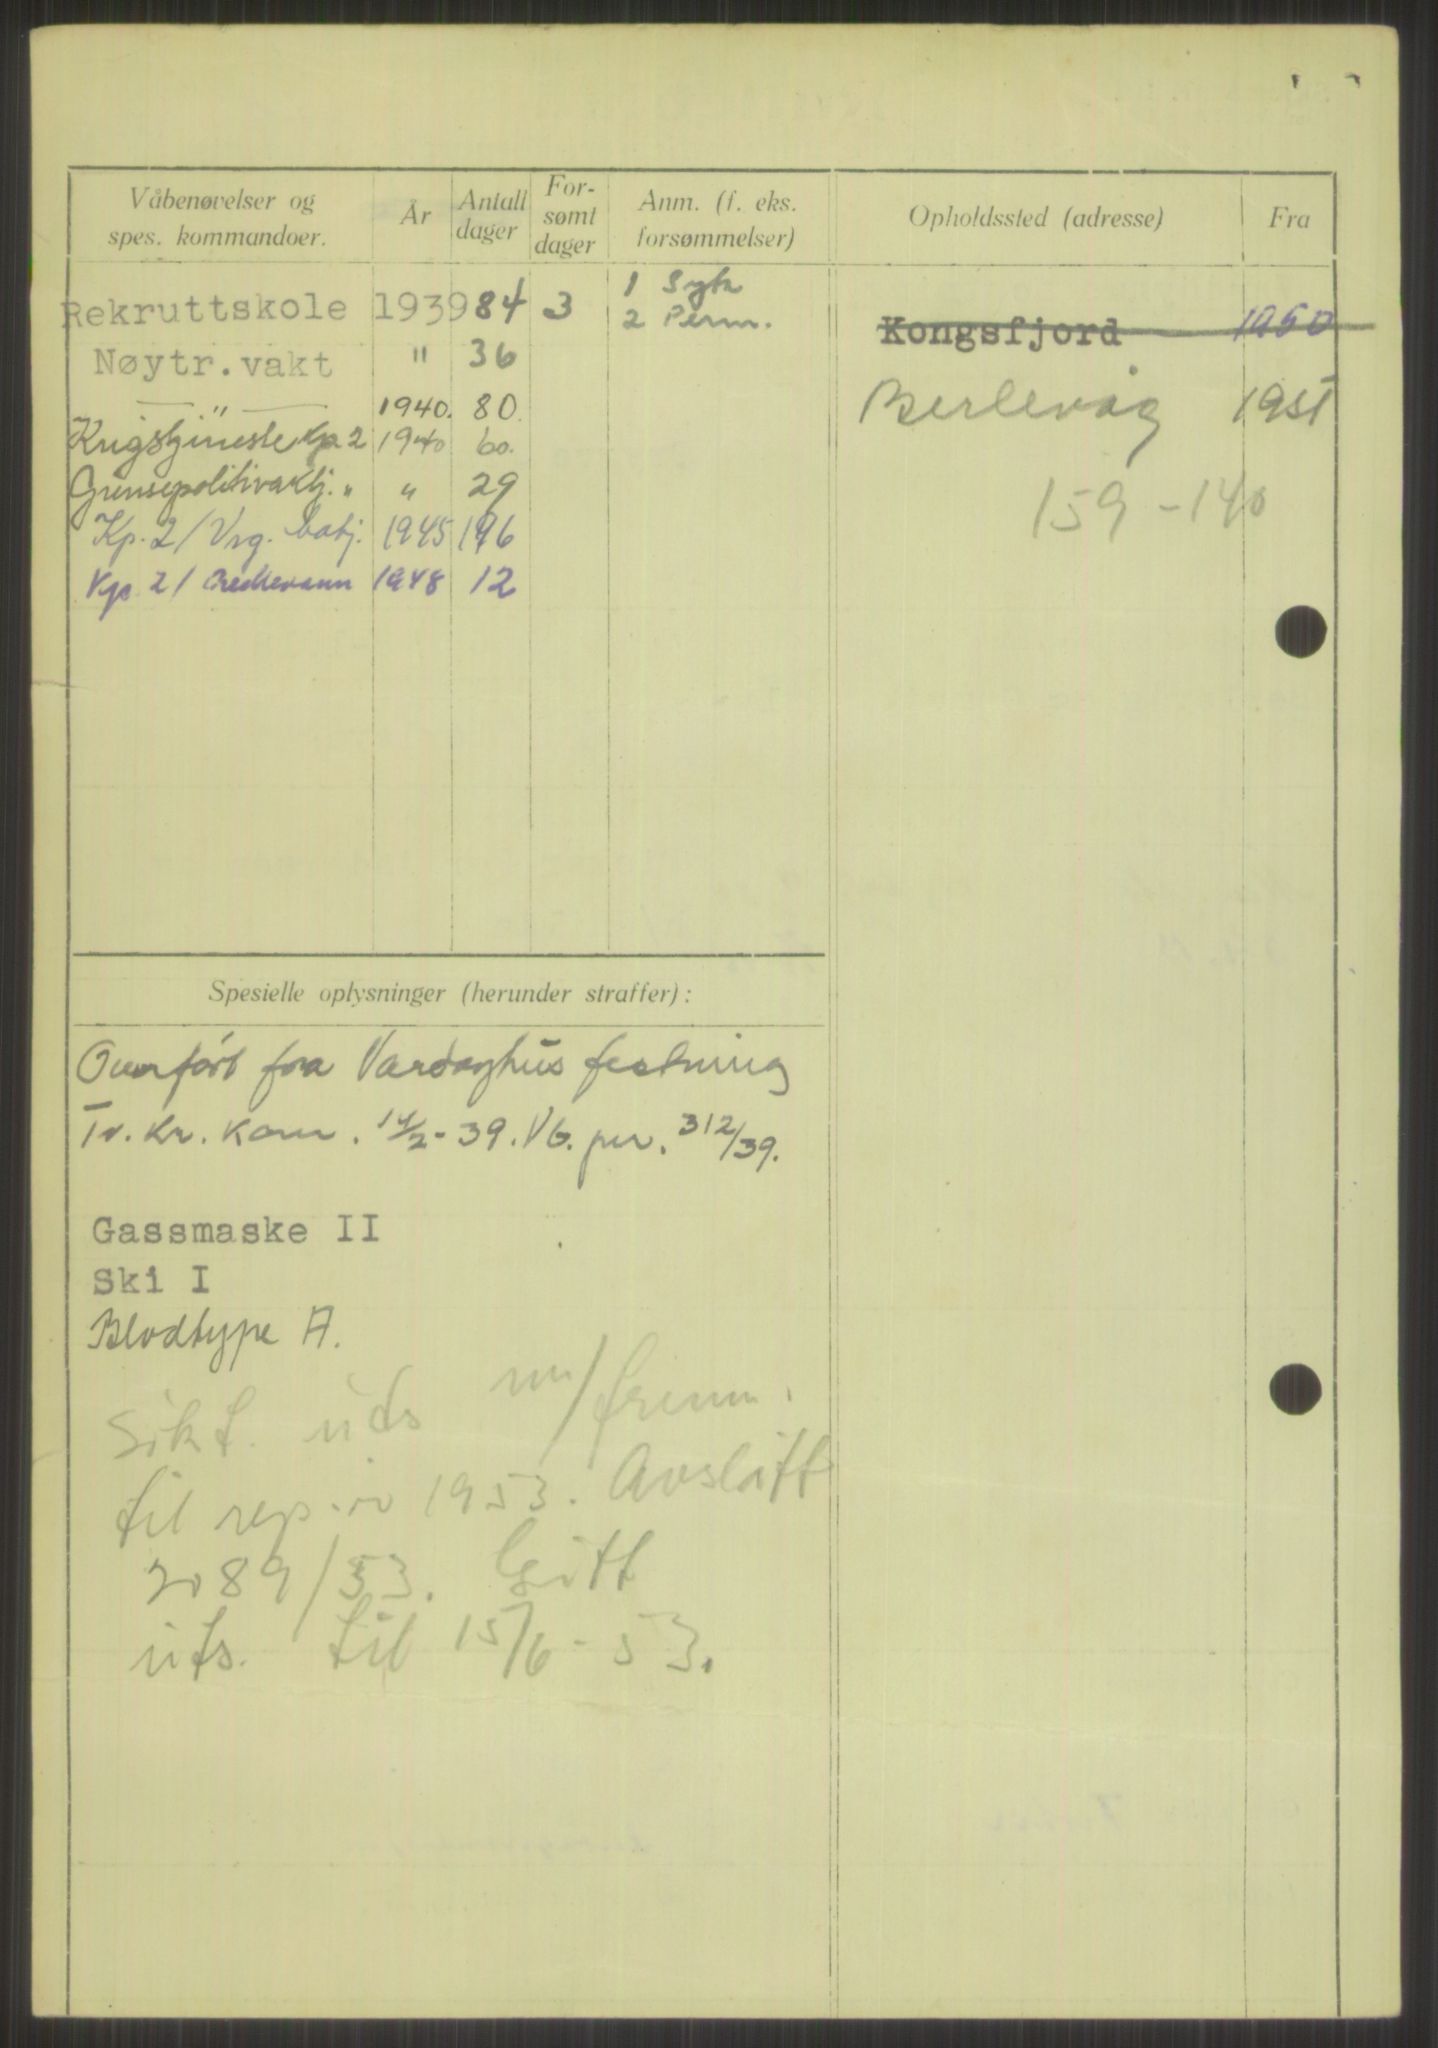 Våbenøvelser og
spes. kommandoer.
År
Antall
dager
For-
sømt
dager
Anm. (f. eks.
forsømmelser)
Opholdssted (adresse)
Fra
Rekruttskole 1939 84 3 1 Syk
2 Perm.
Nøytr.vakt " 36
— " — 1940. 80.
Krigstjineste Kp 2 1940 60.
Grensepolitivaktj. " " 29
Kp. 2/ Varg. batj. 1945 196
Kp. 2/ 1948 12
Kongsfjord 1950
Berlevåg 1951
159-140
Spesielle oplysninger (herunder straffer):
Overført fra Vardøhus festning
Tr. kr. kom. 14/2-39. Vb. pr. 312/39.
Gassmaske II
Ski I
Blodtype A.
Søkt. uts m/fremm.
til rep.øv 1953. Avslått
2089/53. Gitt
uts. til 15/6-53.